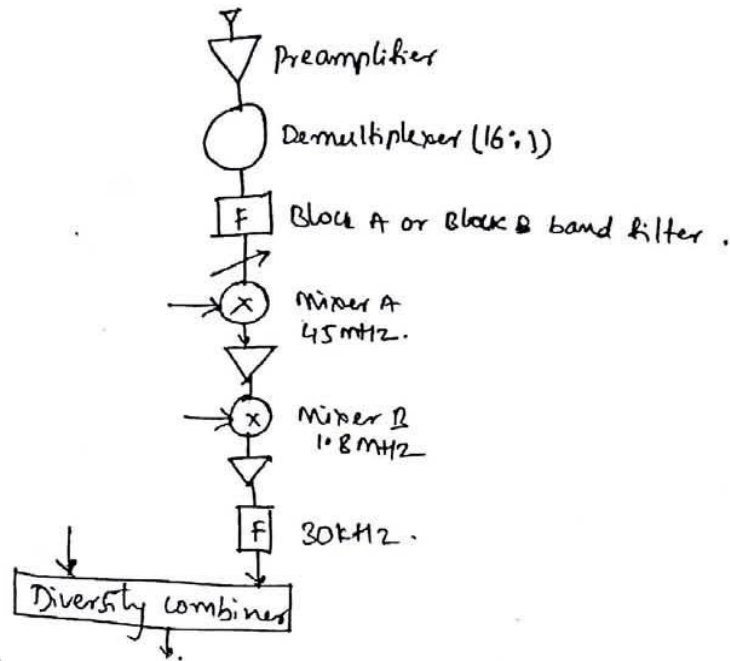 Preamplifier
Demultiplexer (16:1)
F Block A or Block B band filter.
X Mixer A
45 MHz.
X Mixer B
1.8 MHz
F 30kHz.
Diversity combiner